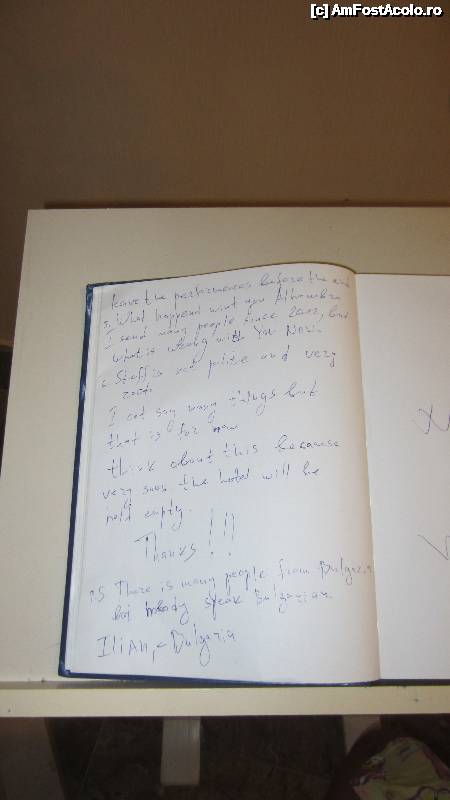 [c] AmFostAcolo.ro
leave the performences before the end
5. What happend wint you Alhambra
I send many people since 2002, but
what is wrong with You Now.
6. Staff is not polite and very
I cat say many things but
that is for now
think about this because
very soon the hotel will be
half empty.
Thanks!!!
P.S There is many people from Bulgaria
but nobody speak Bulgarian
IliAn, Bulgaria